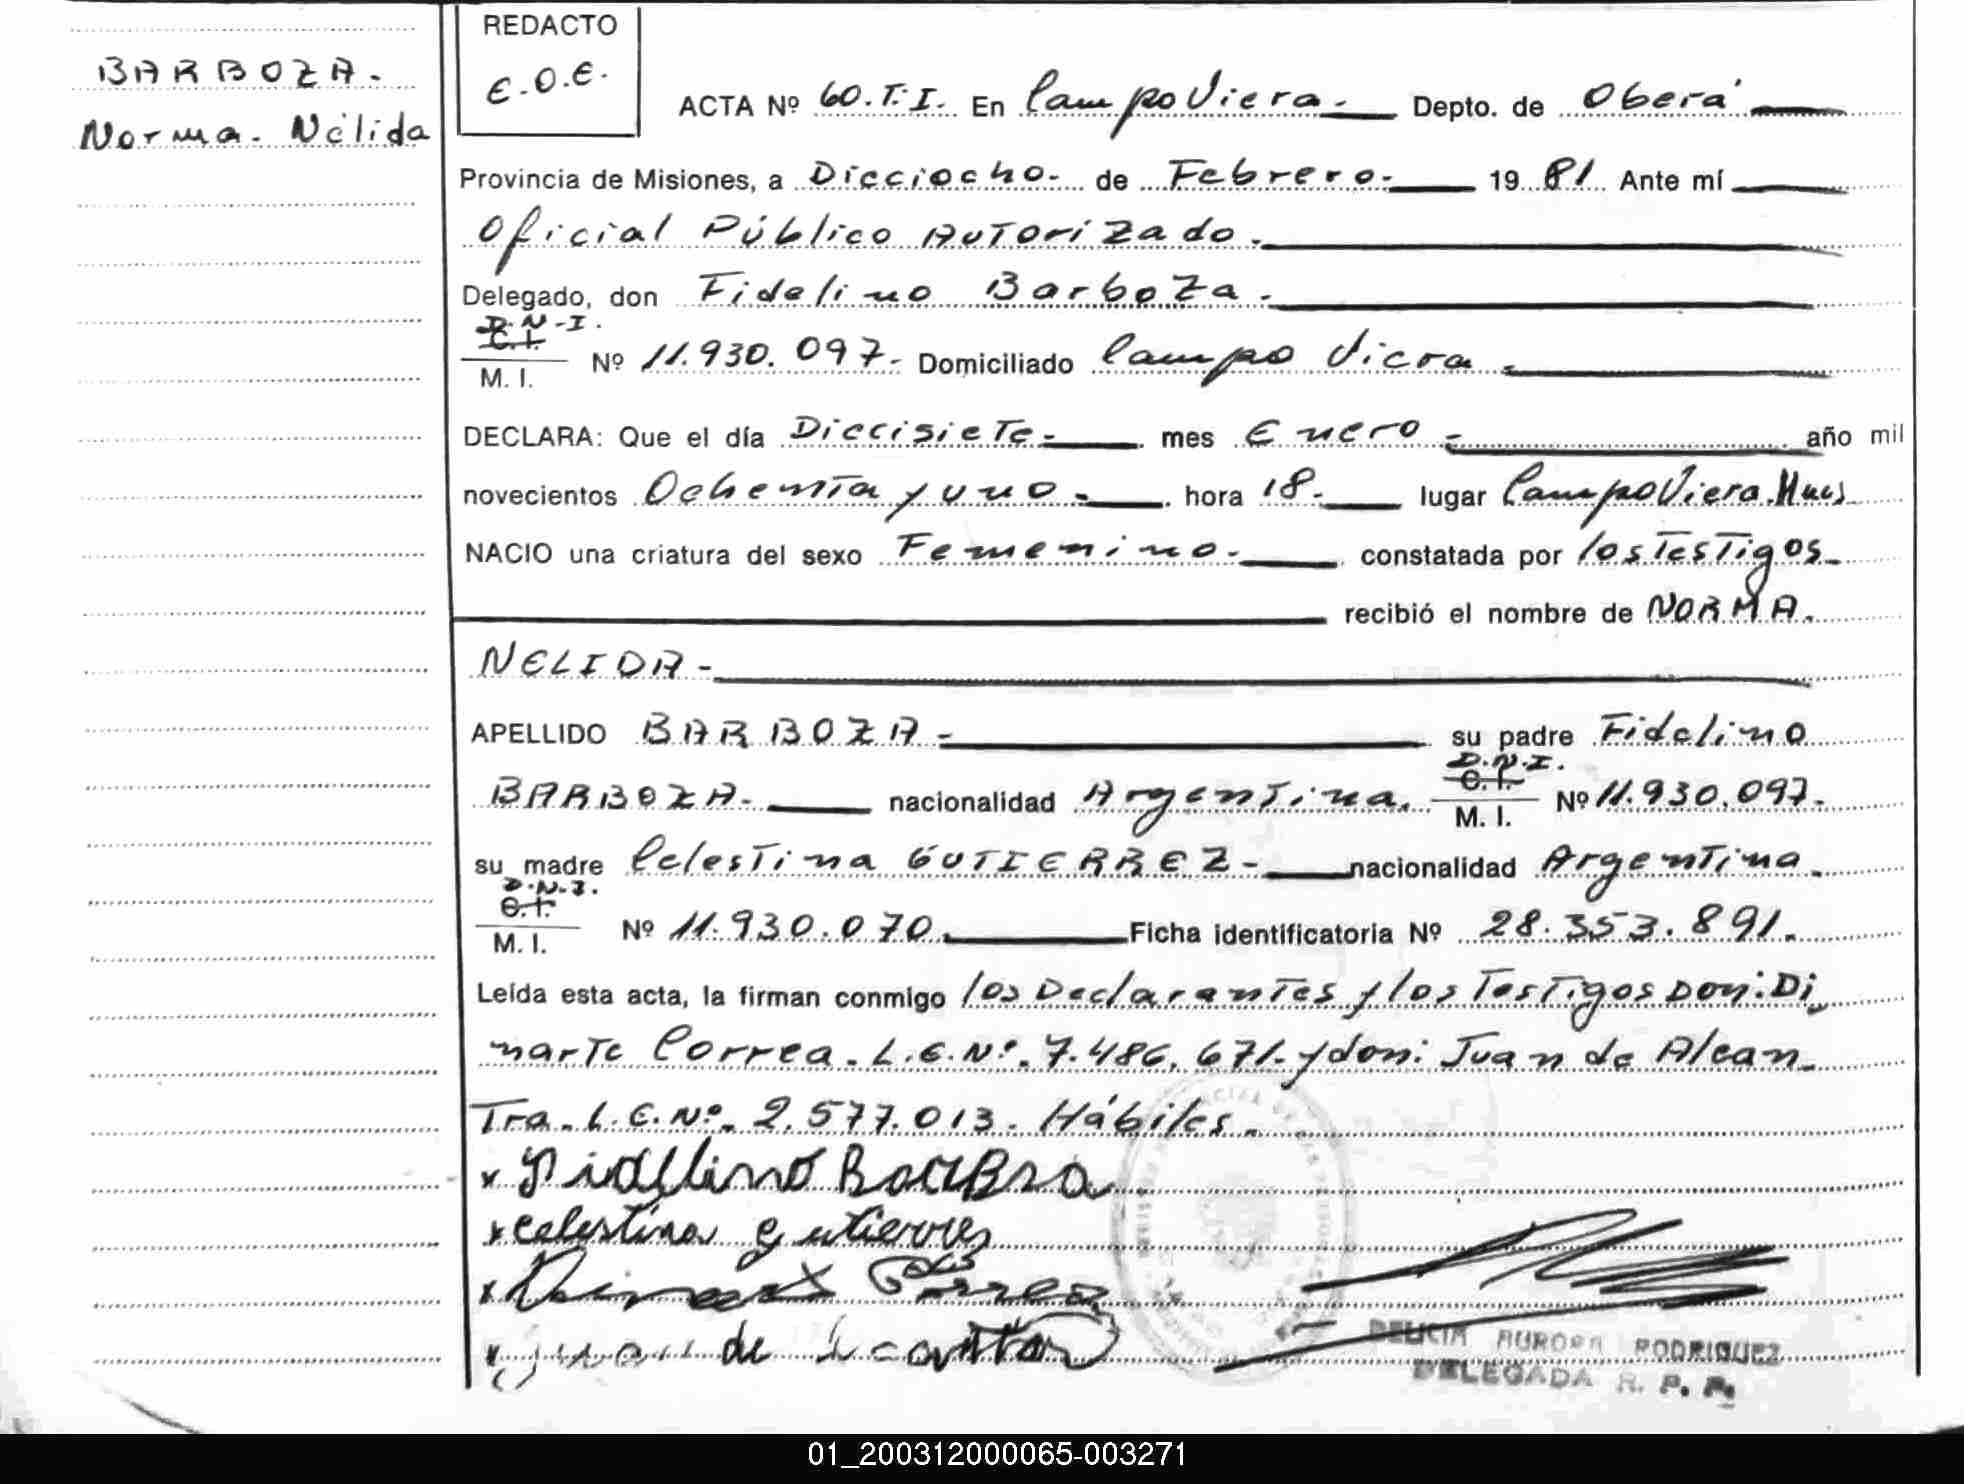 BARBOZA.
Norma. Nélida
REDACTO
E.O.E.
ACTA Nº 60.T.I. En Campo Viera. Depto. de Oberá
Provincia de Misiones, a Dieciocho. de Febrero. 1981 Ante mí
Oficial Público Autorizado.
Delegado, don Fidelino Barboza.
D.N.I.
C.I.
M. I. Nº 11.930.097. Domiciliado Campo Viera
DECLARA: Que el día Diecisiete mes Enero año mil
novecientos Ochenta y uno hora 18. lugar Campo Viera.
NACIO una criatura del sexo Femenino. constatada por los Testigos
recibió el nombre de NORMA.
NELIDA-
APELLIDO BARBOZA- su padre Fidelino
BARBOZA- nacionalidad Argentina. D.N.I. C.I. M. I. Nº 11.930.097.
su madre Celestina GUTIERREZ- nacionalidad Argentina.
D.N.I.
C.I.
M. I. Nº 11.930.070. Ficha identificatoria Nº 28.353.891.
Leída esta acta, la firman conmigo los Declarantes y los Testigos Don: Di
narte Correa. L.E.Nº. 7.486.671. y don: Juan de Alcan
Tra. L.E.Nº. 2.577.013. Hábiles.
x Fidellino Barboza
x Celestina gutierres
x Correa
x Juan de
DELICIA AURORA RODRIGUEZ
DELEGADA R. P. P.
01_200312000065-003271